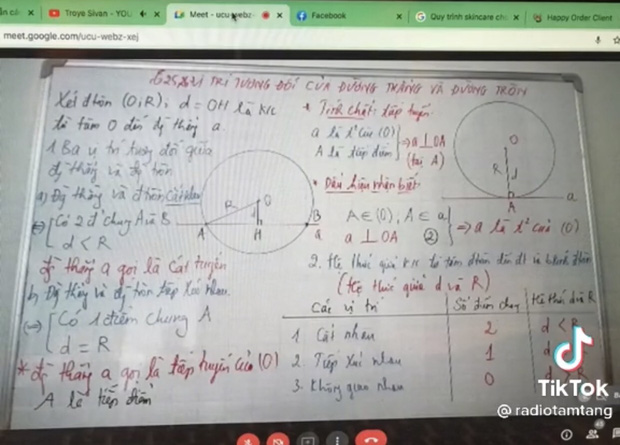 Troye Sivan - YOU
Meet - ucu-webz-
Facebook
Quy trình skincare chi
Happy Order Client
meet.google.com/ucu-webz-xej
TRÍ TƯƠNG ĐỐI CỦA ĐƯỜNG THẲNG VÀ ĐƯỜNG TRÒN
Xét đtròn (O;R), d = OH là k/c
từ tâm O đến đg thẳng a.
1. Ba vị trí tương đối giữa
đg thẳng và đg tròn
a) Đg thẳng và đtròn cắt nhau
Có 2 đ' chung A và B
d < R
đg thẳng a gọi là cát tuyến
b, Đg thẳng và đg tròn tiếp xúc nhau
Có 1 điểm chung A
d = R
* đg thẳng a gọi là tiếp tuyến của (O)
A là tiếp điểm
R
O
d
A
H
B
a
* Tính chất: tiếp tuyến
a là t² của (O)
A là tiếp điểm
=> a ⊥ OA
(tại A)
* Dấu hiệu nhận biết
A ∈ (O), A ∈ a
a ⊥ OA
=> a là t² của (O)
O
R
d
A
a
2. Hệ thức giữa k/c từ tâm đtròn đến đt và b.kính đtròn
(Hệ thức giữa d và R)
Các vị trí
Số điểm chung
Hệ thức d và R
1. Cắt nhau
2
d < R
2. Tiếp xúc nhau
1
3. Không giao nhau
0
TikTok
@radiotamtang